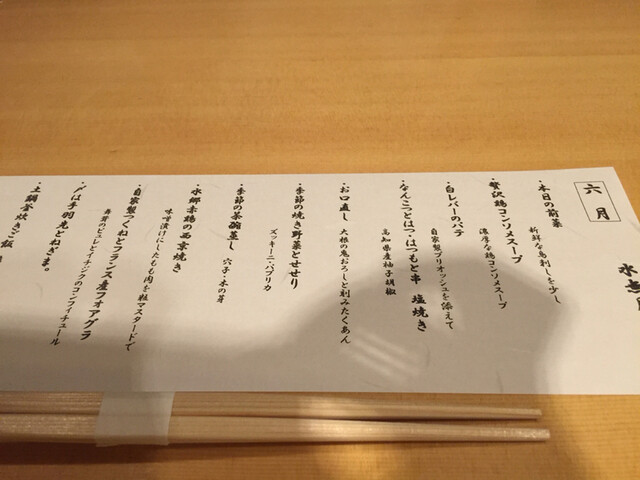 六月
・本日の前菜
新鮮な鳥刺しを少し
・贅沢鶏コンソメスープ
濃厚な鶏コンソメスープ
・白レバーのパテ
自家製ブリオッシュを添えて
・なんこつとはつ・はつもと串 塩焼き
高知県産柚子胡椒
・お口直し
大根の鬼おろしと刻みたくあん
・季節の焼き野菜とせせり
ズッキーニ・パプリカ
・季節の茶碗蒸し
穴子・木の芽
・水郷赤鶏の西京焼き
味噌漬けにしたもも肉を粒マスタードで
・自家製つくねとフランス産フォアグラ
舞茸のピュレとイチジクのコンフィチュール
・〆は手羽先とねぎま。
・土鍋釜炊きご飯